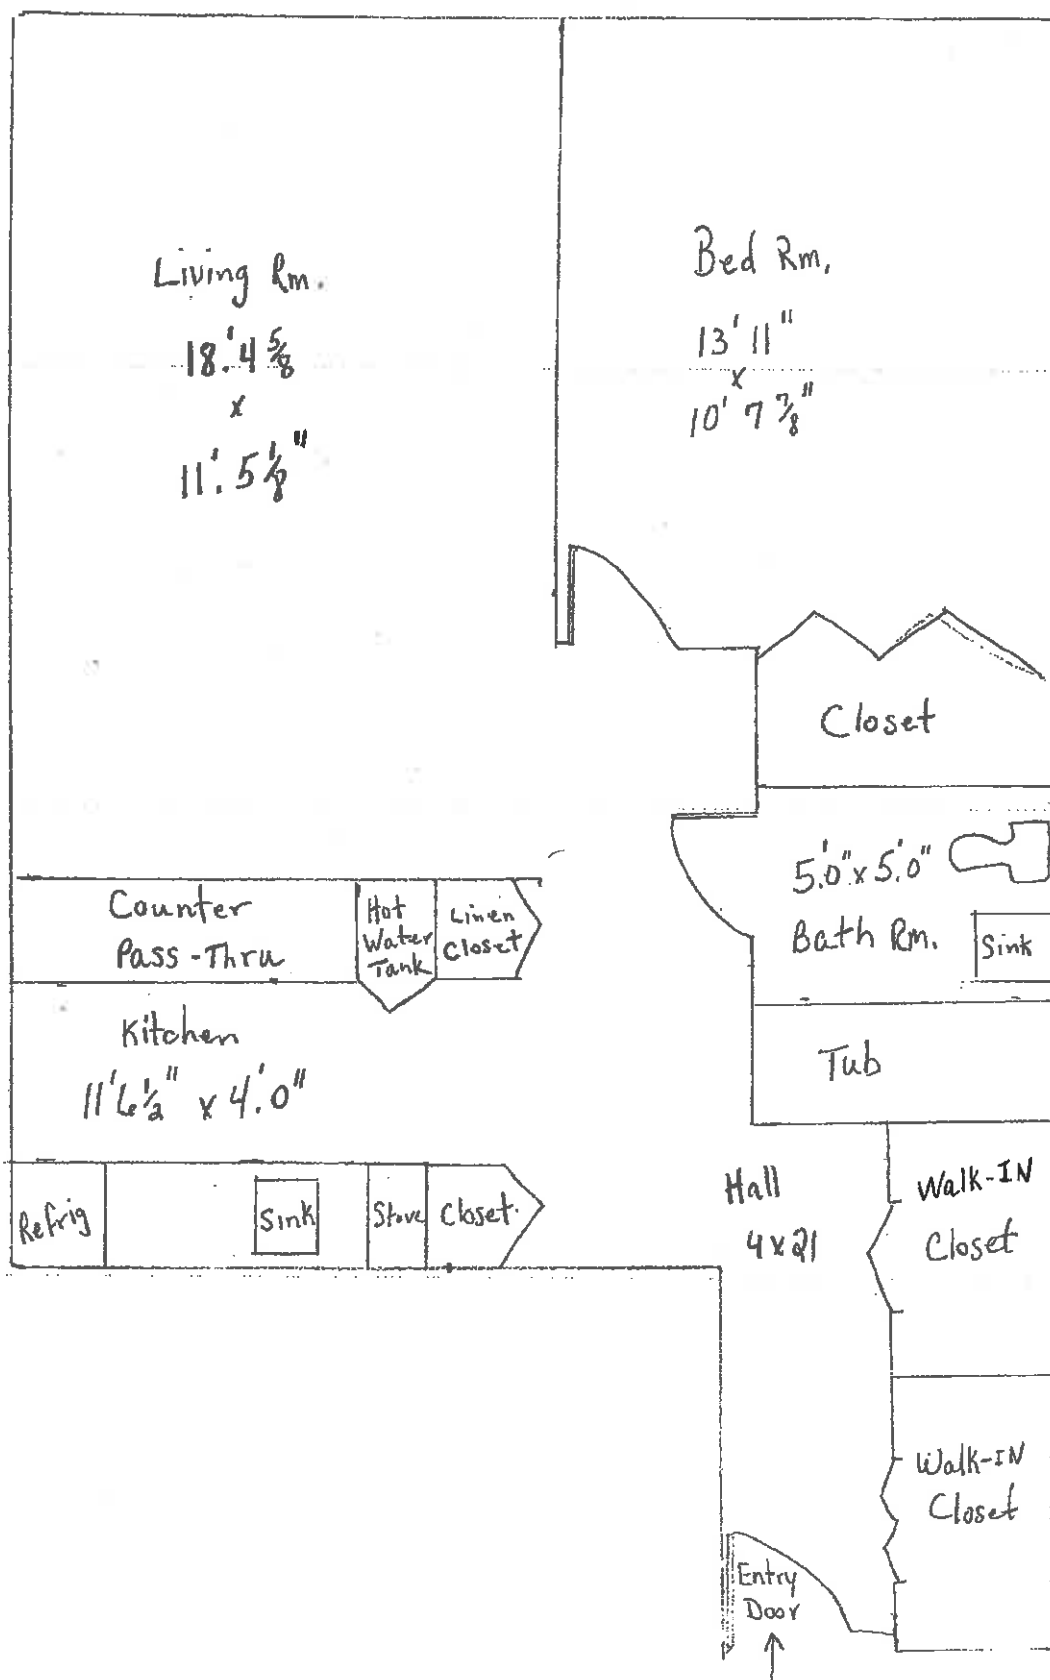 Living Rm.
18'.4 5/8
x
11'.5 1/8"
Bed Rm.
13' 11"
x
10' 7 7/8"
Closet
5'.0" x 5'.0"
Bath Rm.
Sink
Tub
Counter
Pass-Thru
Hot
Water
Tank
Linen
Closet
Kitchen
11'6 1/2" x 4'.0"
Refrig
Sink
Stove
Closet
Hall
4 x 21
Walk-IN
Closet
Walk-IN
Closet
Entry
Door